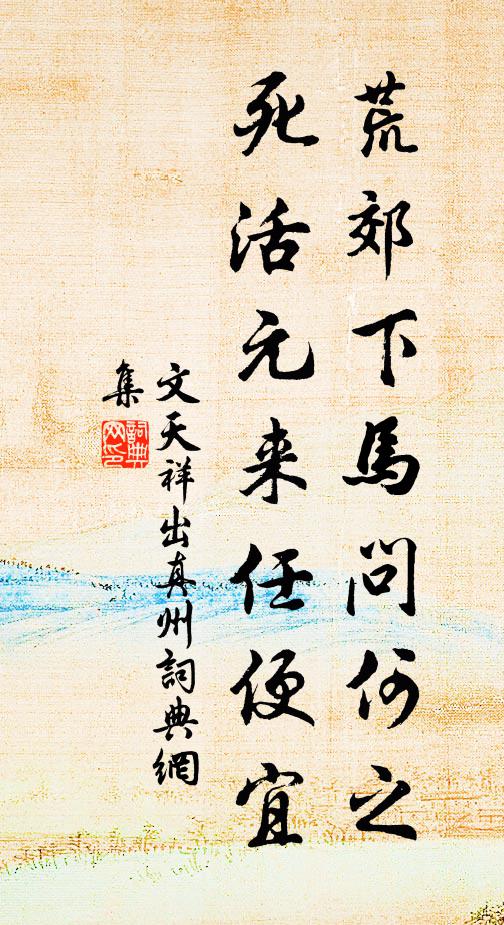 荒郊下馬問何之
死活元来任便宜
文天祥出真州詞典網
集
詞典
网印